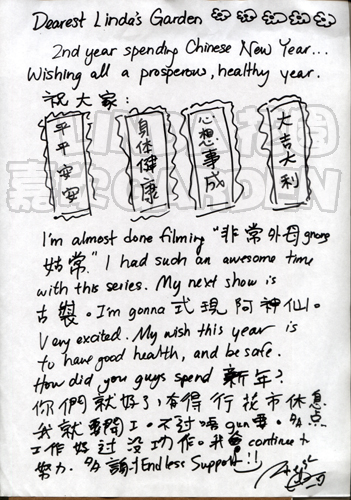 Dearest Linda's Garden
2nd year spending Chinese New Year...
Wishing all a prosperous, healthy year.
祝大家:
平平安安
身体健康
心想事成
大吉大利
I'm almost done filming "非常外母
姑常." I had such an awesome time
with this series. My next show is
古裝。I'm gonna 式現阿神仙。
Very excited. My wish this year is
to have good health, and be safe.
How did you guys spend 新年?
你們就好了,有得行花市休息
我就要開工。不过唔 gun 要。多点
工作好过没功作。我會 continue to
努力. 多謝! Endless Support!!
LINDA
GARDEN